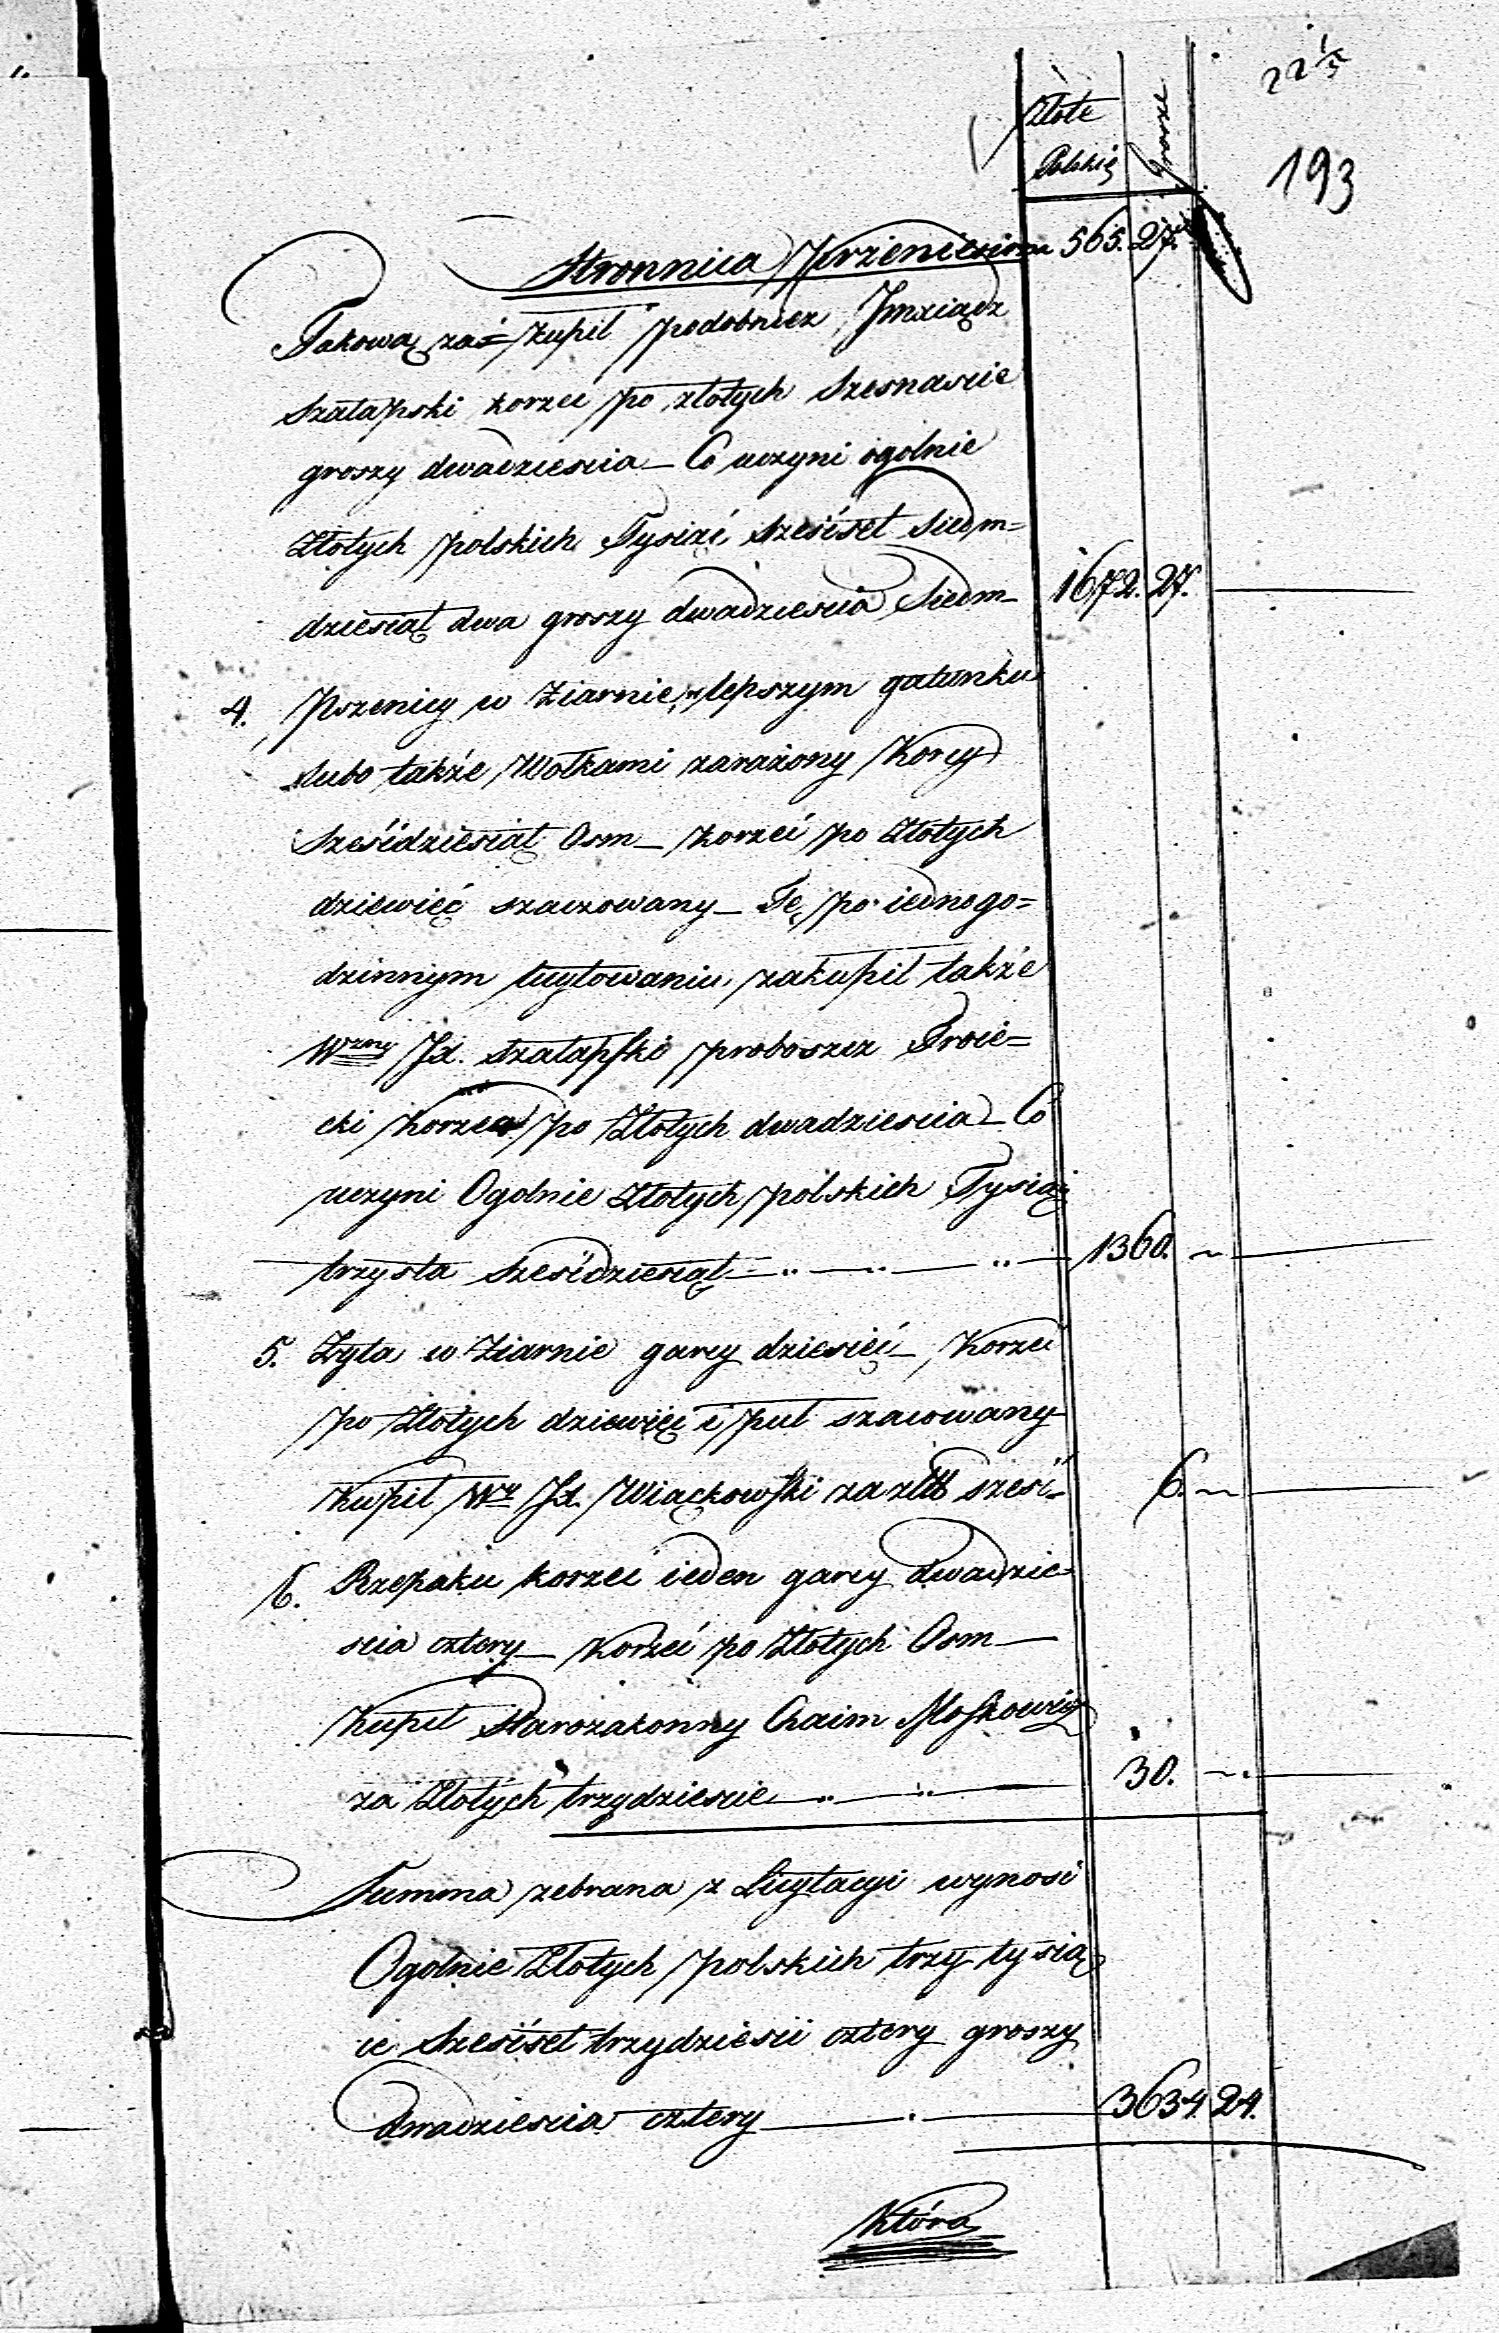 22 1/2
Złote Polskię Grosze
193
Stronnica Przeniesiona 565. 27.
Takową zaś kupił podobnież Jmxiądz
Szatapski korzec po złotych szesnascie
groszy dwadziescia – Co uczyni ogolnie
Złotych polskich Tysiąc sześćset siedm=
dziesiąt dwa groszy dwadziescia siedm – 1672. 27.
4. Pszenicy w Ziarnie, w lepszym gatunku
lubo także Wołkami zarażony Korcy
Sześćdziesiąt Osm – korzeć po Złotych
dziewięć szaczowany – Tę po iednogo=
dzinnym licytowaniu, zakupił także
Wzny JX. Szatapski proboszcz Troie=
cki Korzec po Złotych dwadziescia – Co
uczyni Ogolnie Złotych polskich Tysiąc
trzysta Sześćdziesiąt 1360. ~
5. Żyta w Ziarnie garcy dziesięć – Korzec
po Złotych dziewięć i puł szacowany
kupił Wy JX. Wiąckowski za złł sześć 6. ~
6. Rzepaku korzec ieden garcy dwadzie=
scia cztery – Korzeć po Złotych Osm –
kupił Starozakonny Chaim Moskowicz
za Złotych trzydziescie 30. ~
Summa zebrana z Licytacyi wynosi
Ogolnie Złotych polskich trzy tysią
ce Sześćset trzydzieści cztery groszy
dwadziescia cztery 3634. 24.
Która